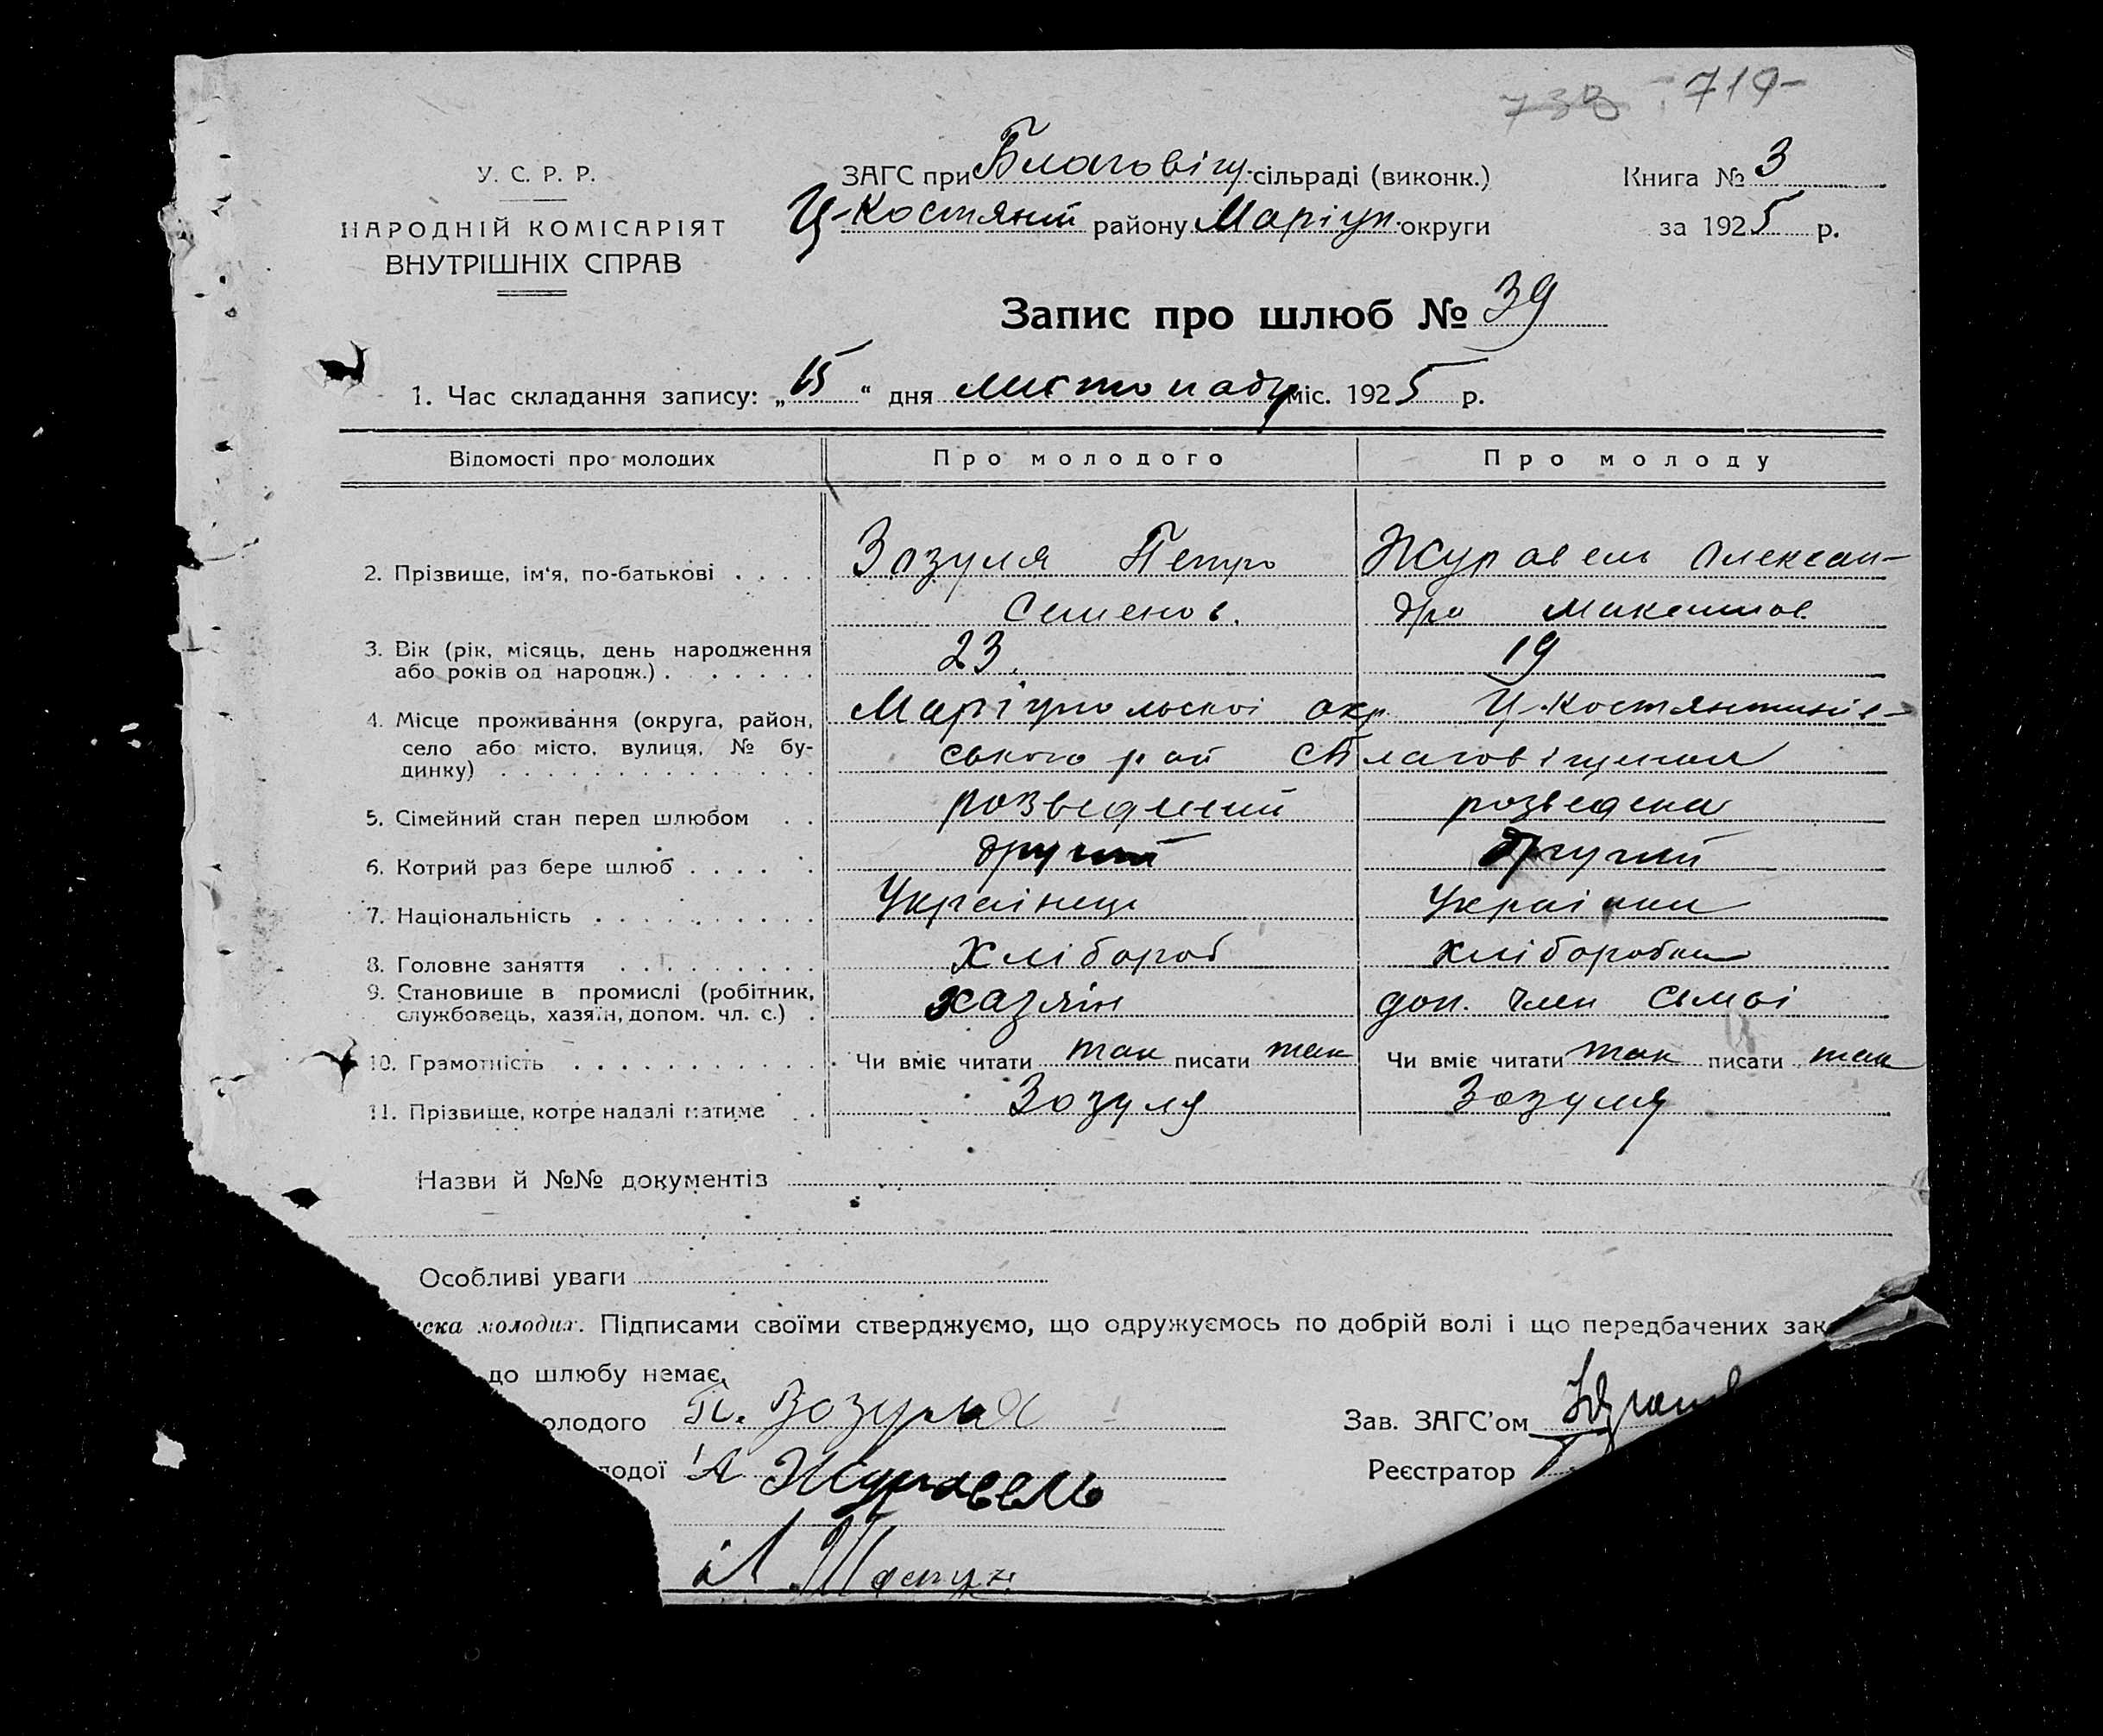 738 719
У. С. Р. Р.
НАРОДНІЙ КОМІСАРІЯТ
ВНУТРІШНІХ СПРАВ
ЗАГС при Благовіщ. сільраді (виконк.)
Ц-Костяний району Маріуп. округи
Книга № 3
за 1925 р.
Запис про шлюб № 39
1. Час складання запису: „15“ дня листопаду міс. 1925 р.
Відомості про молодих Про молодого Про молоду
2. Прізвище, ім'я, по-батькові . . . . Зозуля Петро Журавель Олексан-
Семенов. дра Максимов.
3. Вік (рік, місяць, день народження 23. 19
або років од народж.) . . . . . . .
4. Місце проживання (округа, район, Маріупольскоі окр. Ц-Костянтинів-
село або місто, вулиця, № бу- ського рай с Благовіщенка
динку) . . . . . . . . . . . . . .
5. Сімейний стан перед шлюбом . . розведений розведена
6. Котрий раз бере шлюб . . . . . другий другий
7. Національність . . . . . . . . . . Українець Українка
8. Головне заняття . . . . . . . . . Хлібороб хліборобка
9. Становище в промислі (робітник, хазяін доп. член сімьі
службовець, хазяїн, допом. чл. с.) .
10. Грамотність . . . . . . . . . . . . Чи вміє читати так писати так Чи вміє читати так писати так
11. Прізвище, котре надалі матиме . . Зозуля Зозуля
Назви й №№ документів
Особливі уваги
иска молодих. Підписами своїми стверджуємо, що одружуємось по добрій волі і що передбачених зак
до шлюбу немає.
олодого П. Зозуля Зав. ЗАГС'ом
лодої А Журавель Реєстратор